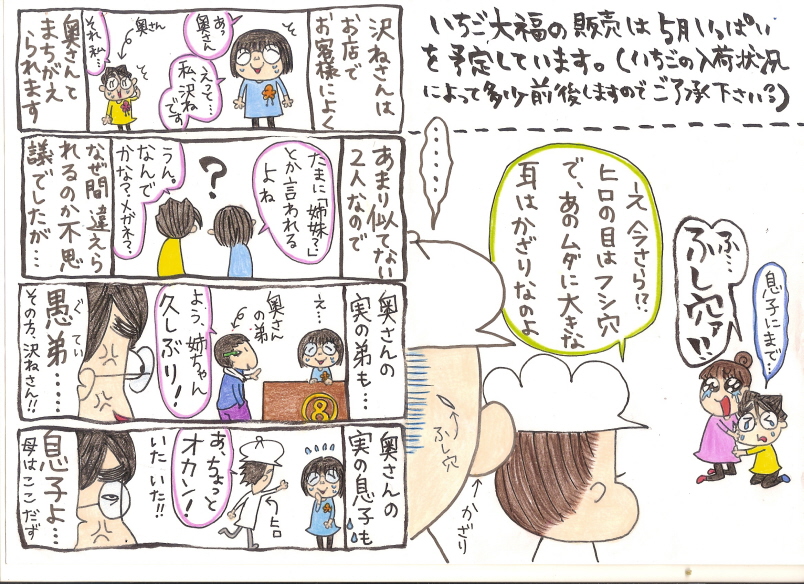 いちご大福の販売は5月いっぱい
を予定しています。(いちごの入荷状況
によって多少前後しますのでご了承下さい?)
沢ねさんは
お店で
お客様によく
あっ
奥さん
えって…
私沢ね
です
そ
奥さん
それ私…
そ
奥さんて
まちがえ
られます
あまり似てない
2人なので
たまに「姉妹?」
とか言われる
よね
?
うん。
なんで
かな?メガネ?
なぜ間違えら
れるのか不思
議でしたが…
奥さんの
実の弟も…
え…
奥さん
の弟
よう、姉ちゃん
久しぶり!
8
ぐてい
愚弟……
その方、沢ねさん!!
奥さんの
実の息子も
あ、ちょっと
オカン!
いたいた!!
ヒロ
息子よ…
母はここだず
……
え今さら!?
ヒロの目はフシ穴
で、あのムダに大きな
耳はかざりなのよ
ふし穴
かざり
ふ…
ふし穴ァ!!
息子にまで…